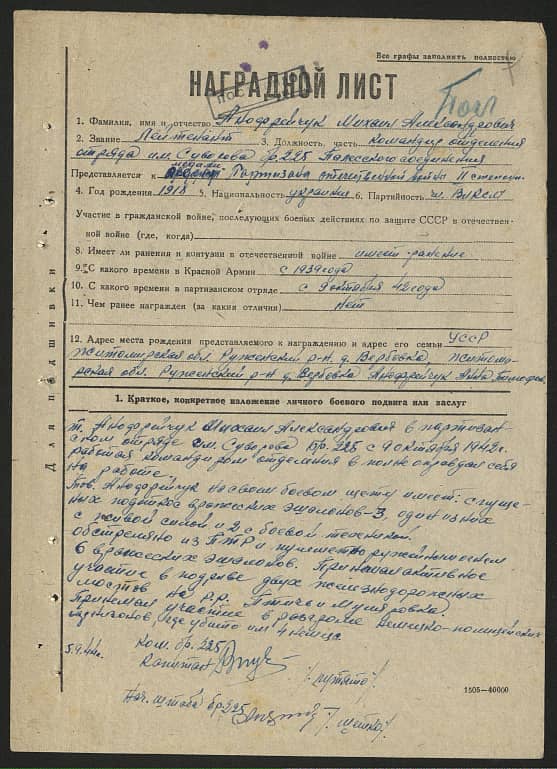 Все графы заполнить полностью
НАГРАДНОЙ ЛИСТ
1. Фамилия, имя и отчество Анофрийчук Михаил Александрович
2. Звание Лейтенант 3. Должность, часть командир отделения
отряда им. Суворова бр. 225 Полесского соединения
медали
Представляется к Партизана отечественной войны II степени
4. Год рождения 1918 5. Национальность украинец 6. Партийность чл. ВЛКСМ
Участие в гражданской войне, последующих боевых действиях по защите СССР в отечествен-
ной войне (где, когда)
8. Имеет ли ранения и контузии в отечественной войне имеет ранение
9. С какого времени в Красной Армии с 1939 года
10. С какого времени в партизанском отряде с 9 октября 42 года
11. Чем ранее награжден (за какия отличия) нет
12. Адрес места рождения представляемого к награждению и адрес его семьи УССР
Житомирская обл. Ружинский р-н д. Вербовка Житоми-
рская обл. Ружинский р-н д. Вербовка Анофрийчук Анна
Для подшивки
1. Краткое, конкретное изложение личного боевого подвига или заслуг
т. Анофрийчук Михаил Александрович в партизан-
ском отряде им. Суворова бр. 225 с 9 октября 1942 г.
работая командиром отделения в полне оправдал себя
на работе.
Тов. Анофрийчук на своем боевом щету имеет: спуще-
нных под откос вражеских эшалонов-3, один из них
с живой силой и 2 с боевой техникой.
обстреляно из ПТР и пулеметно ружейным огнем
6 вражеских эшалонов. Принимал активное
участие в подрыве двух железнодорожных
мостов на р.р. Птичь и Муляровка.
Принимал участие в разгроме немецко-полицейских
гарнизонов, где убито им 4 немца.
5.9.44 г.
Ком. бр. 225
Капитан
Нач. штаба бр. 225
1505—40000